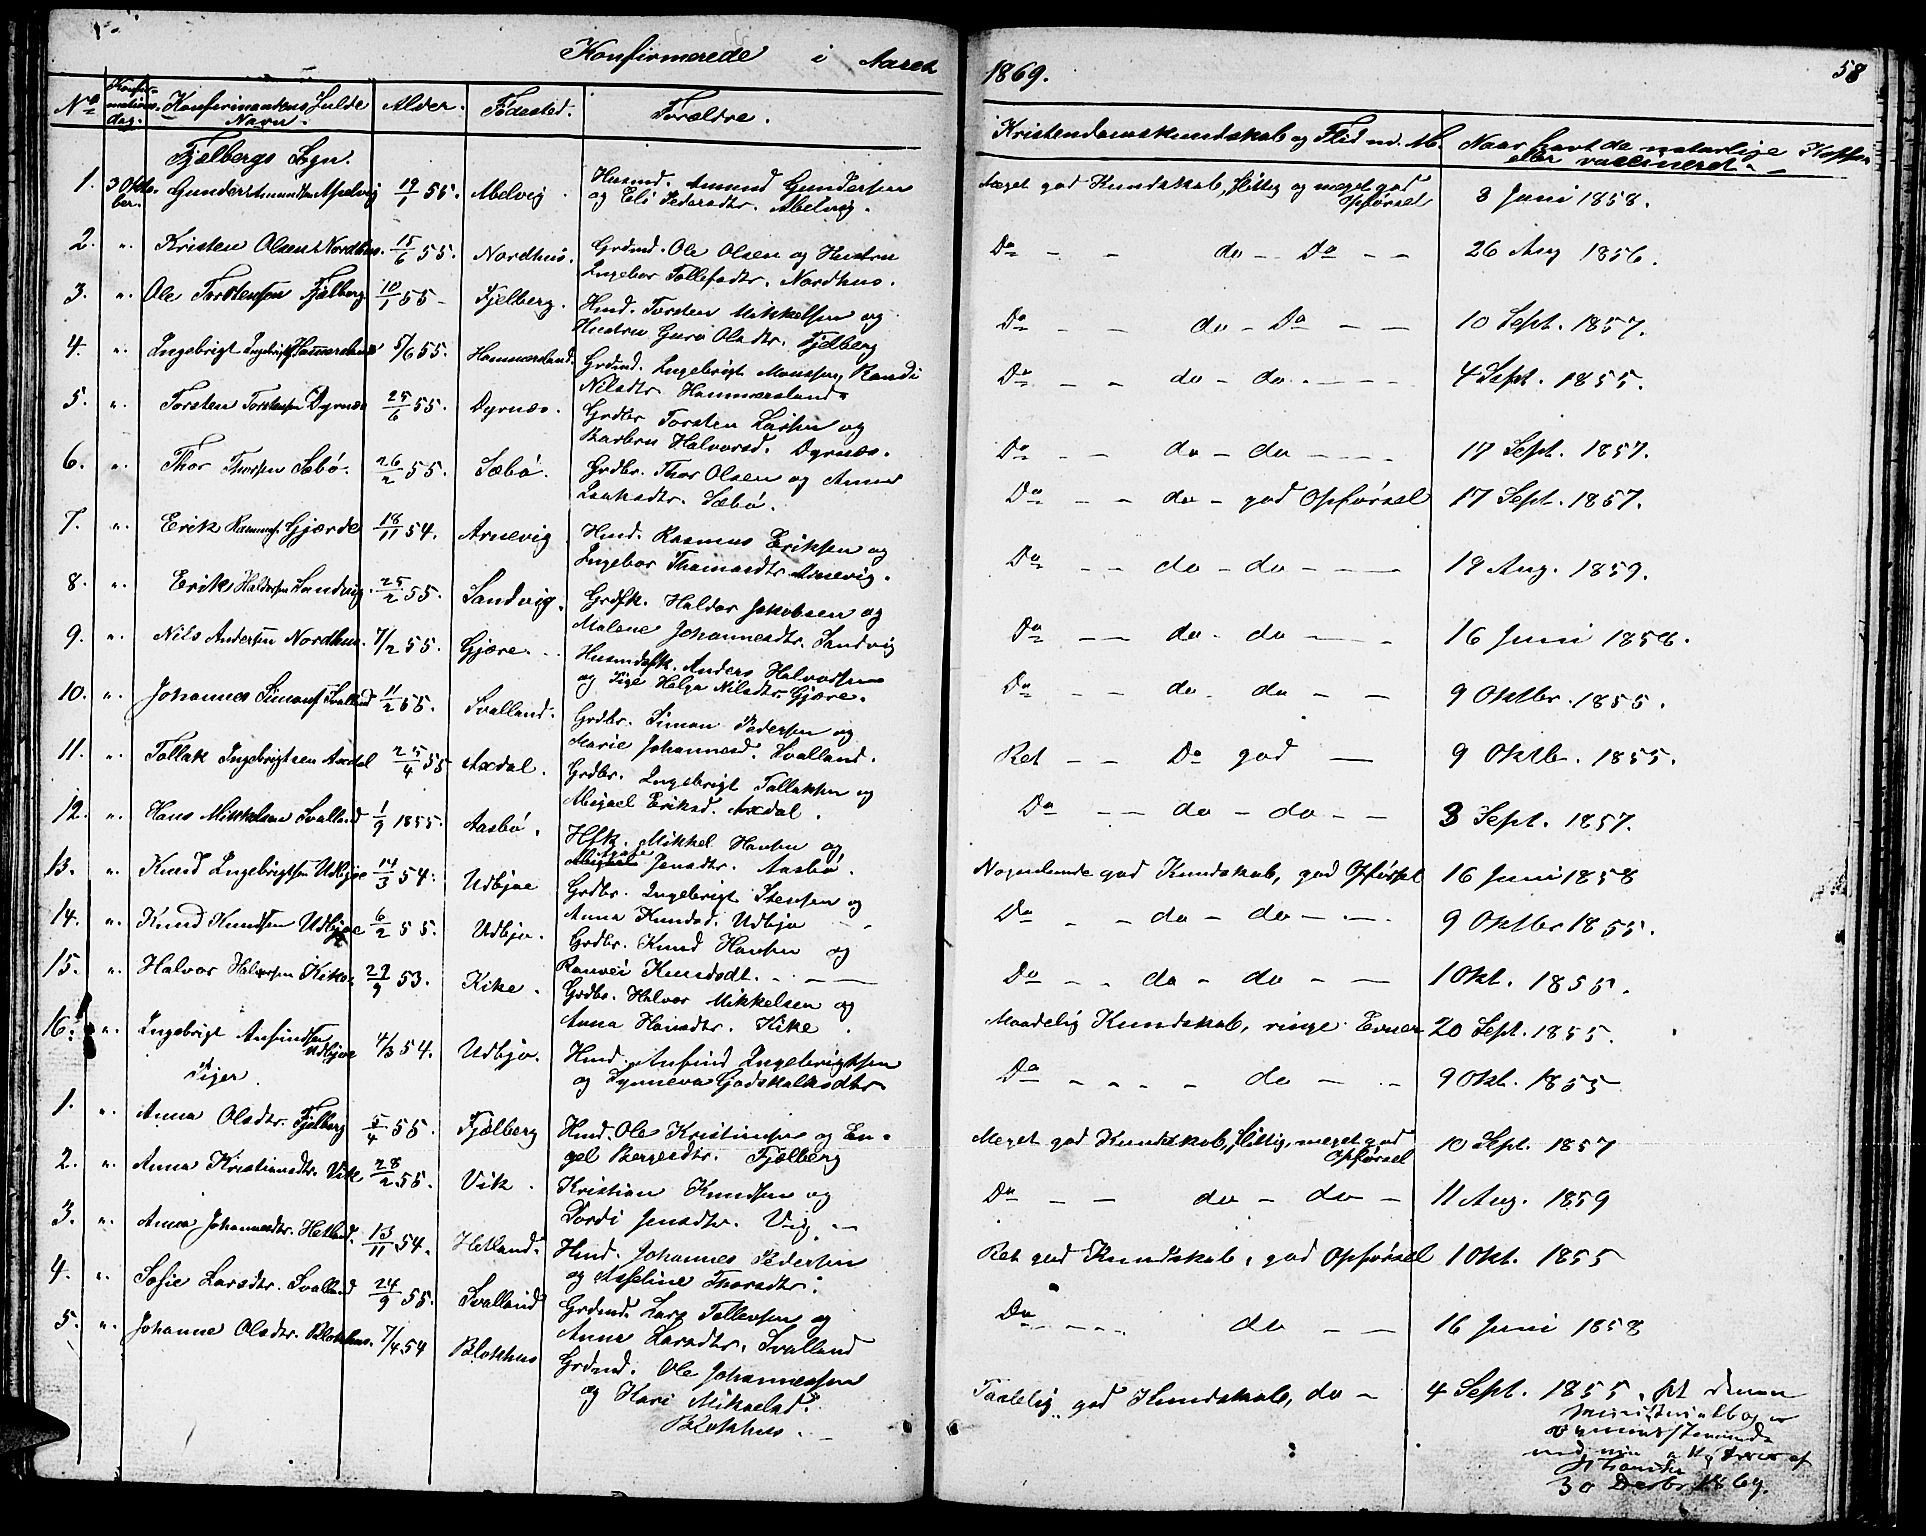 Konfirmerede i Aaret 1869. 58
No Konfirmationsdag. Konfirmandens Fulde Navn. Alder. Fødested. Forældre. Kristendomskundskab og Flid m. M. Naar havt de naturlige Kopper eller vaccineret.
Fjelbergs Sgn.
1. 3 Oktober. Gunder Amundsen 19/1 55. Abelvig. Husmd. Amund Gundersen Meget god Kundskab, flittig og meget god Opførsel 3 Juni 1858.
og Eli Pedersdtr. Abelvig.
2. " Kristen Olsen Nordhus. 15/6 55. Nordhus. Grdmd. Ole Olsen og Hustru Do - - do - Do - - 26 Aug 1856.
Ingebor Tollefsdtr. Nordhus.
3. " Ole Torstensen Fjelberg 10/1 55 - Fjelberg. Hmd. Torsten Mikkelsen og Do - - do - Do - - 10 Sept. 1857.
Hustru Guro Olsdtr. Fjelberg
4. " Ingebrigt Ingebrigts. Hammersland 5/6 55. Hammersland. Grdmd. Ingebrigt Monssen, Randi Do - - do - do - - - 4 Sept. 1855.
Nilsdtr Hammersland.
5. " Torsten Torstensen Dyrnes 25/6 55. Dyrnes. Grdbr Torsten Larsen og Do - - do - do - - - 17 Sept. 1857.
Barbru Halvorsd. Dyrnes.
6. " Thor Thorsen Sæbø. 26/2 55. Sæbø. Grdbr. Thor Olsen og Anna Do - - do - god Opførsel 17 Sept. 1857.
Isaksdtr. Sæbø.
7. " Erik Rasmus. Gjerde 18/11 54. Arnevig Hmd. Rasmus Eriksen og Do - - do - do - - - 19 Aug. 1859.
Ingebor Arnevig.
8. " Erik Haldorsen Sandvig. 25/2 55. Sandvig. Grdfk. Haldor Jakobsen og Do - - do - do - - 16 Juni 1858.
Malene Johannesdtr. Sandvig
9. " Nils Andersen Nordhus. 7/2 55. Gjære. - Husmdsfk. Anders Halvorsen Do - - do - do - - 9 Oktbr. 1855.
og Pige Helga Nilsdtr. Gjære.
10. " Johannes Simons. Svalland 11/2 55. Svalland. Grdbr. Simon Pedersen og Ret - - Do god - 9 Oktbr. 1855.
Marie Johannesd. Svalland.
11. " Tollak Ingebrigtsen Axdal 25/4 55 Axdal. Grdbr. Ingebrigt Tollaksen og Do - - do - do - - 3 Sept. 1857.
Eriksd. Axdal.
12. " Hans Mikkelsen Svalland 1/9 1855. Aasbø. Hfk. Mikkel Hansen og Nogenlunde god Kundskab, god Opførsel 16 Juni 1858
Jensdtr. Aasbø.
13. " Knud Ingebrigtsen Udbjoe 14/3 54. Udbjoe Grdbr. Ingebrigt Stensen og Do - - do - do - - 9 Oktbr 1855.
Anna Knudsd. Udbjo - -
14. " Knud Knudsen Udbjoe 6/2 55. Udbjo. Grdbr. Knud Hansen og Do - - do - do - - 1 Okt. 1855.
Ranvei Knudsdt. - - -
15. " Halvor Halvorsen Kike. 29/9 53. Kike. Grdbr. Halvor Mikkelsen og Maadelig Kundskab, ringe Evner 20 Sept. 1855.
Anna Hansdtr. Kike.
16. " Ingebrigt Anfindsen Udbjoe 4/3 54. Udbjo. Hmd. Anfind Ingebrigtsen Do - - - - do - - 9 Okt. 1855
og Synneva Godskalksdtr
Piger.
1. " Anna Olsdtr. Fjelberg 5/4 55. Fjelberg Hmd. Ole Kristensen og En- Meget god Kundskab, flittig, meget god Opførsel 10 Sept. 1857
gel Børgesdtr. Fjelberg
2. " Anna Kristiansdtr. Vik 28/2 55. Vik. Kristian Knudsen og Do - - do - do - 11 Aug. 1859
Jensdtr. Vig -
3. " Anna Johannesdtr. Hetland. 13/11 54. Hetland. Hmd. Johannes Pedersen Ret god Kundskab, god Opførsel 1 Okt. 1855
og Aseline Thorsdtr.
4. " Sofie Larsdtr. Svalland 24/9 55. Svalland Grdmd. Lars Tollevsen og Do - - - - do - - 16 Juni 1858
Anna Larsdtr. Svalland
5. " Johanne Olsdtr. Blokhus. 7/4 54 Blokhus Grdmd. Ole Johannessen Taalelig god Kundskab, do - 4 Sept. 1855. denne
og Kari Mikaelsd.
Blokhus. -
Ministerialbog
med min
30 Decbr 1869.